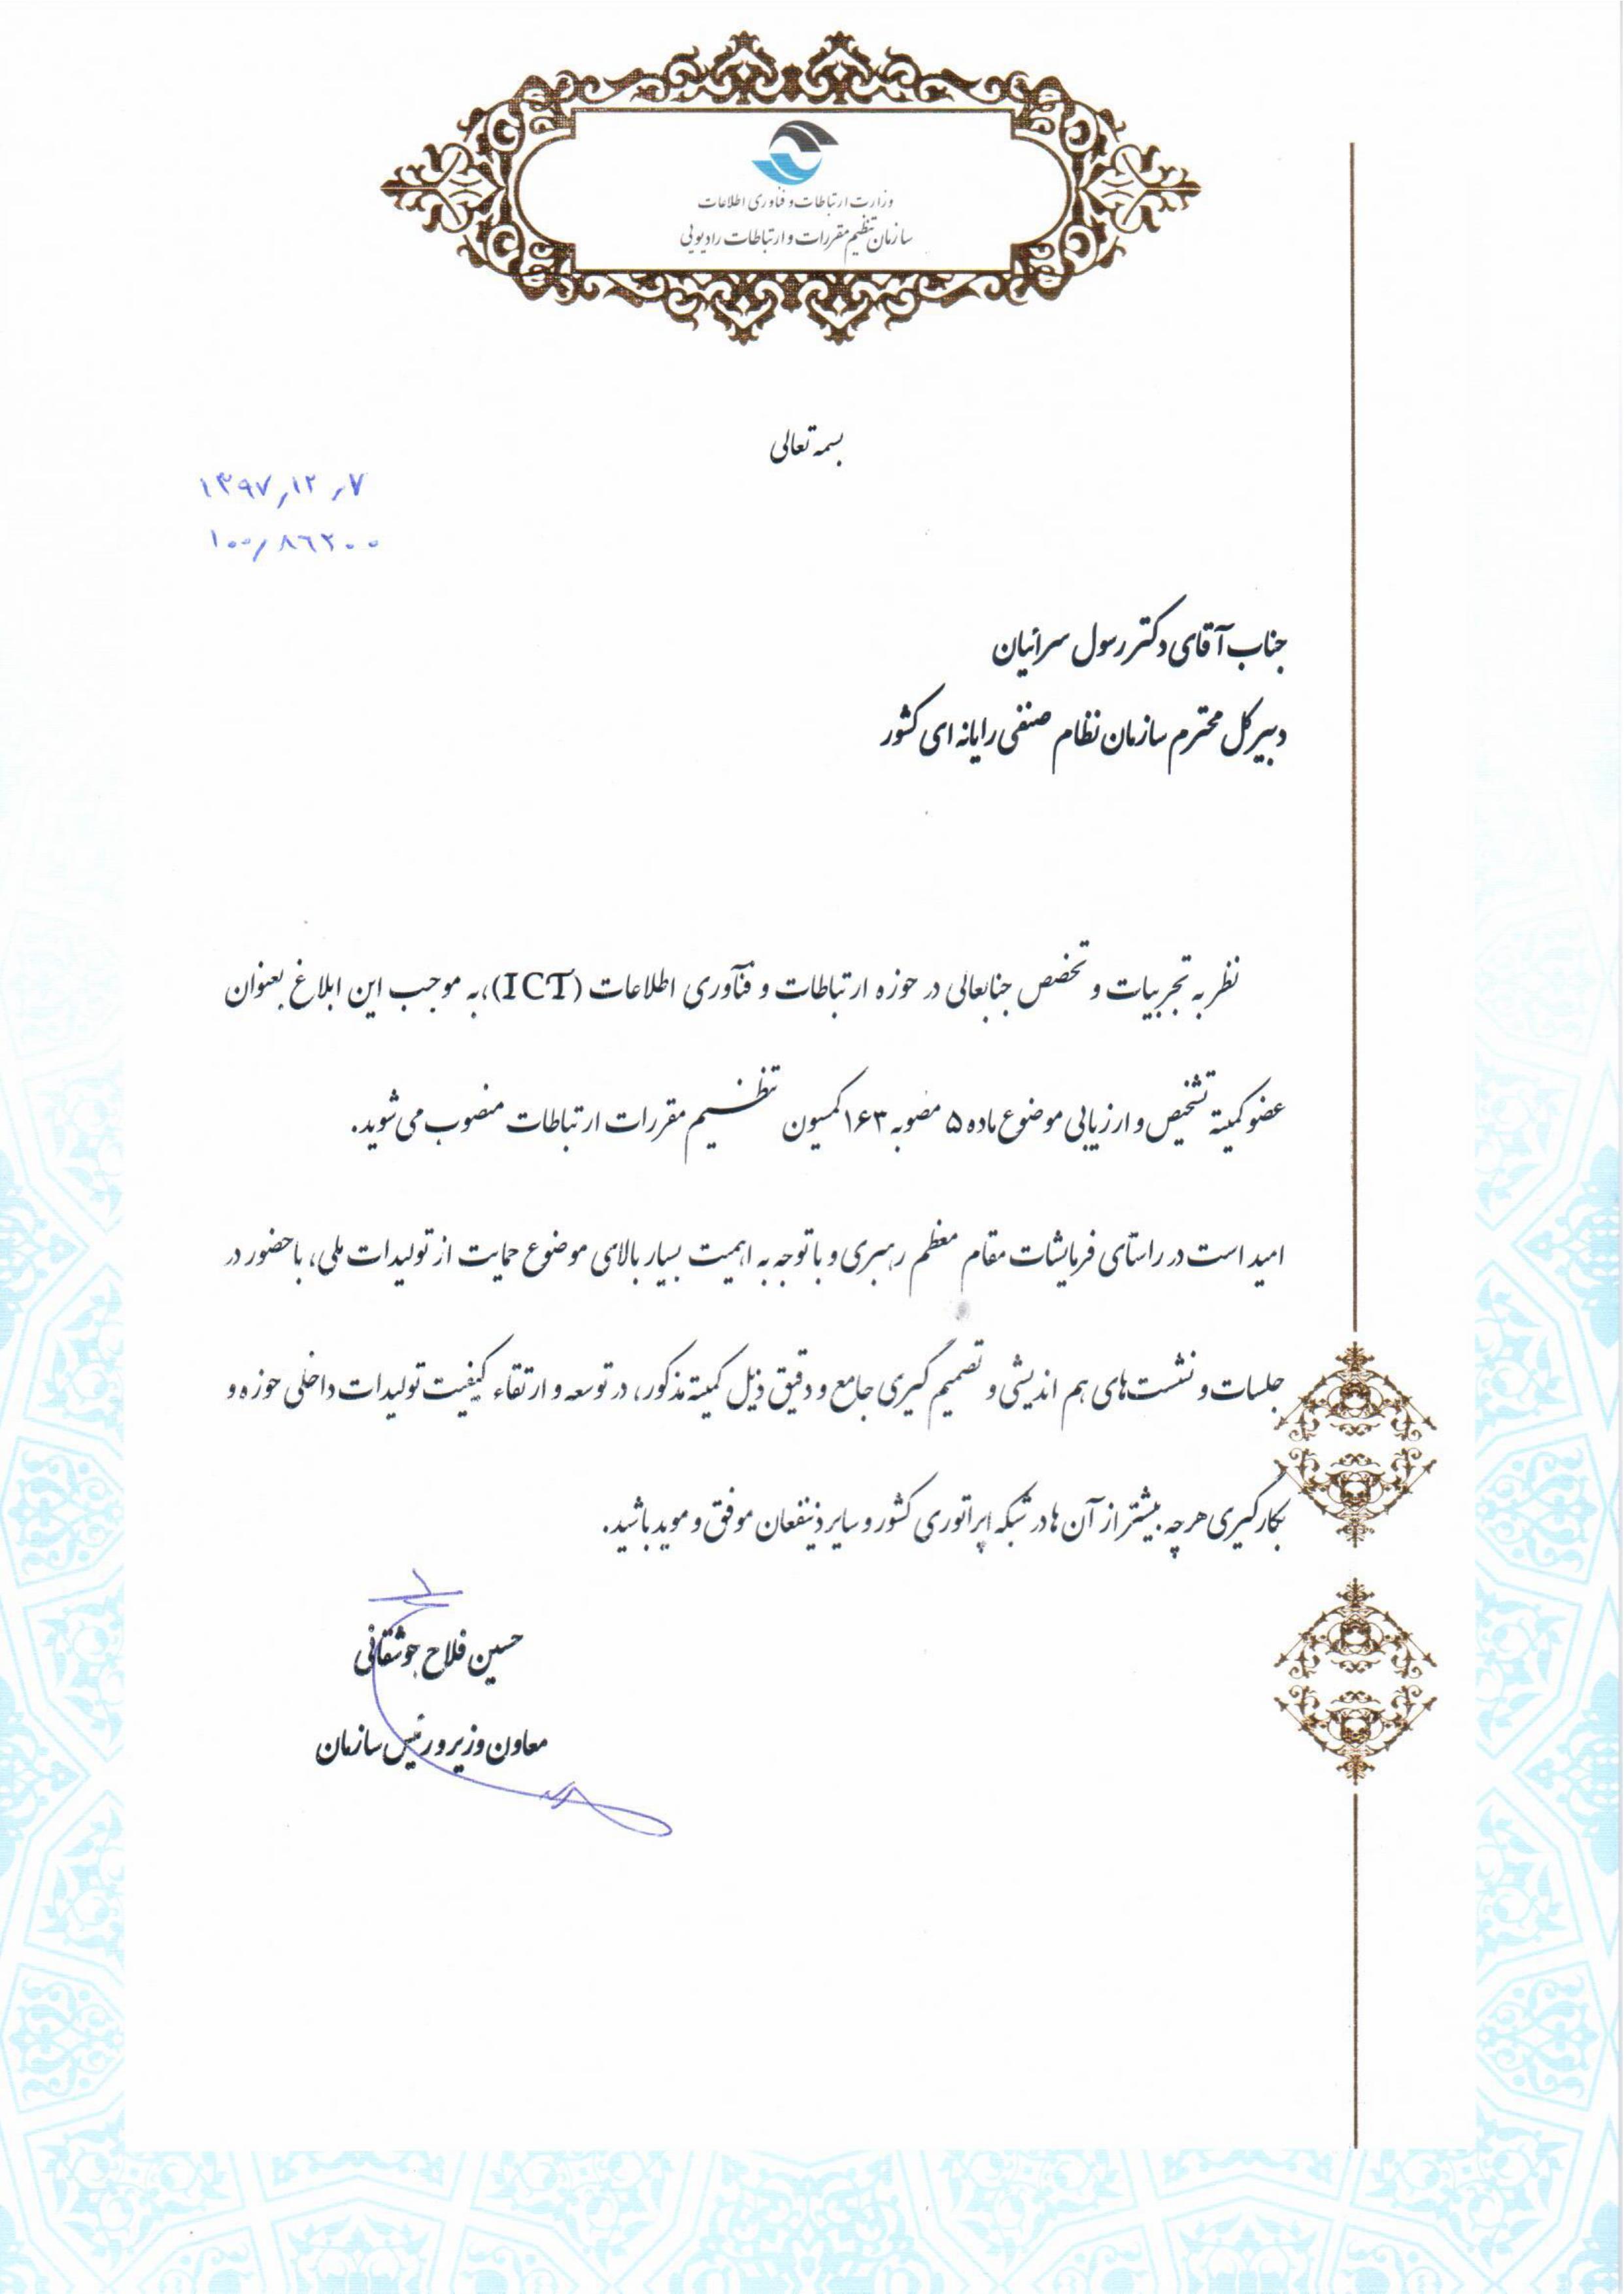 وزارت ارتباطات و فناوری اطلاعات
سازمان تنظیم مقررات و ارتباطات رادیویی
بسمه تعالی
۱۳۹۷/۱۲/۷
۱۰۰/۸۶۲۰۰
جناب آقای دکتر رسول سرائیان
دبیر کل محترم سازمان نظام صنفی رایانه ای کشور
نظر به تجربیات و تخصص جنابعالی در حوزه ارتباطات و فنآوری اطلاعات (ICT)، به موجب این ابلاغ بعنوان
عضو کمیته تشخیص و ارزیابی موضوع ماده ۵ مصوبه ۱۶۳ کمسیون تنظیم مقررات ارتباطات منصوب می شوید.
امید است در راستای فرمایشات مقام معظم رهبری و با توجه به اهمیت بسیار بالای موضوع حمایت از تولیدات ملی، با حضور در
جلسات و نشست های هم اندیشی و تصمیم گیری جامع و دقیق ذیل کمیته مذکور، در توسعه و ارتقاء کیفیت تولیدات داخلی حوزه و
بکارگیری هرچه بیشتر از آن ها در شبکه اپراتوری کشور و سایر ذینفعان موفق و موید باشید.
حسین فلاح جوشقانی
معاون وزیر و رئیس سازمان